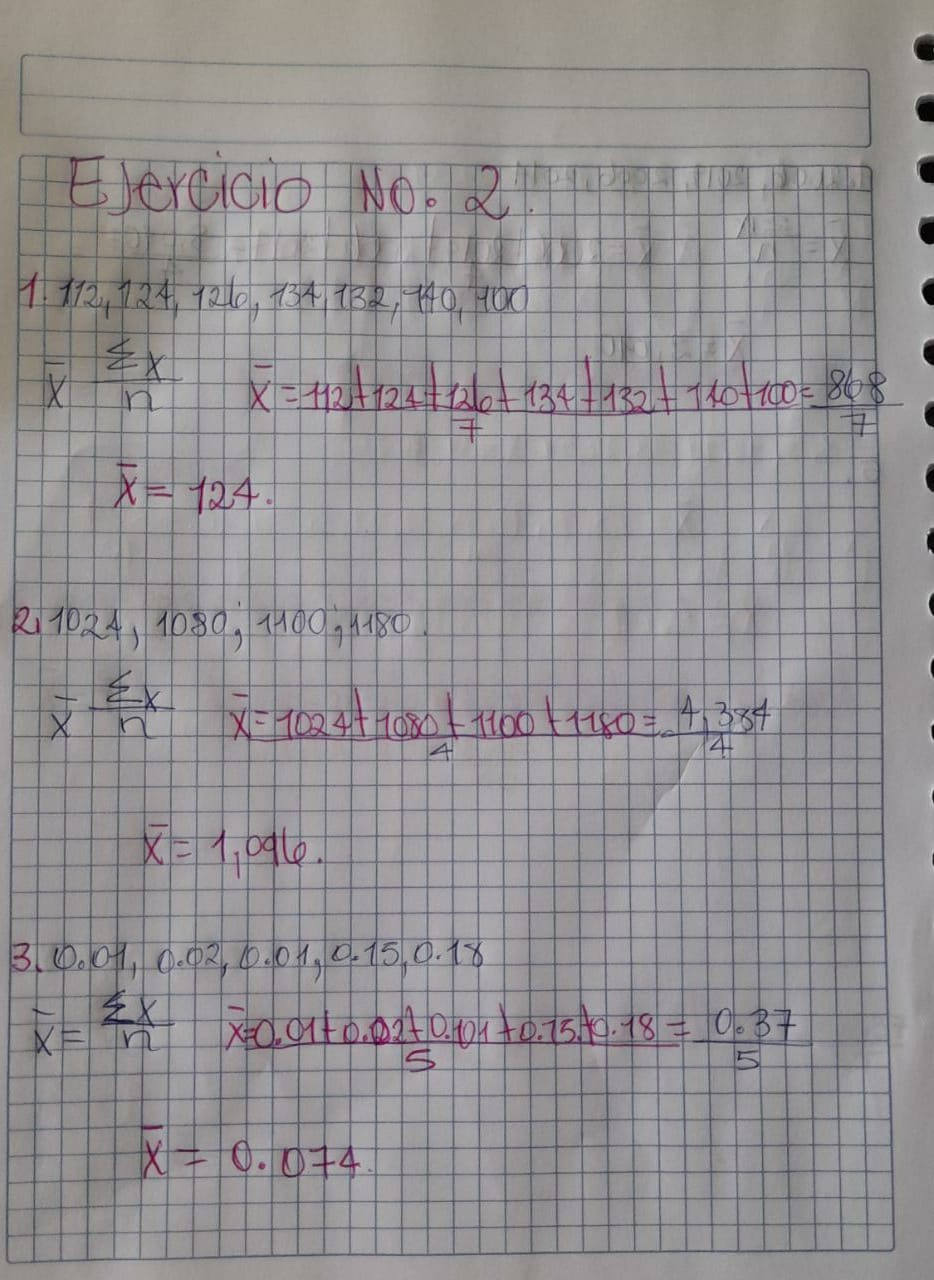 Ejercicio No. 2.
1. 112, 124, 126, 134, 132, 140, 100
x̄ Σx/n x̄ = 112+124+126+134+132+140+100/7 = 868/7
x̄ = 124.
2. 1024, 1080; 1100; 1180.
x̄ Σx/n x̄ = 1024+1080+1100+1180/4 = 4,384/4
x̄ = 1,096.
3. 0.01, 0.02, 0.01, 0.15, 0.18
x̄ = Σx/n x̄=0.01+0.02+0.101+0.15+0.18/5 = 0.37/5
x̄ = 0.074.